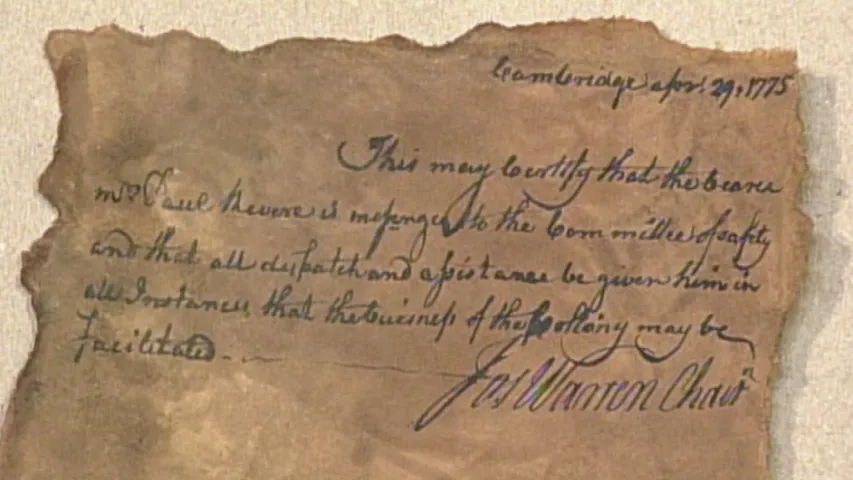 Cambridge apr. 29, 1775
This may Certify that the bearer
mr. Paul Revere is mesenger to the Committee of safty
and that all dispatch and assistance be given him in
all Instances, that the buisness of the Collony may be
facilitated.
Jos Warren Chairn